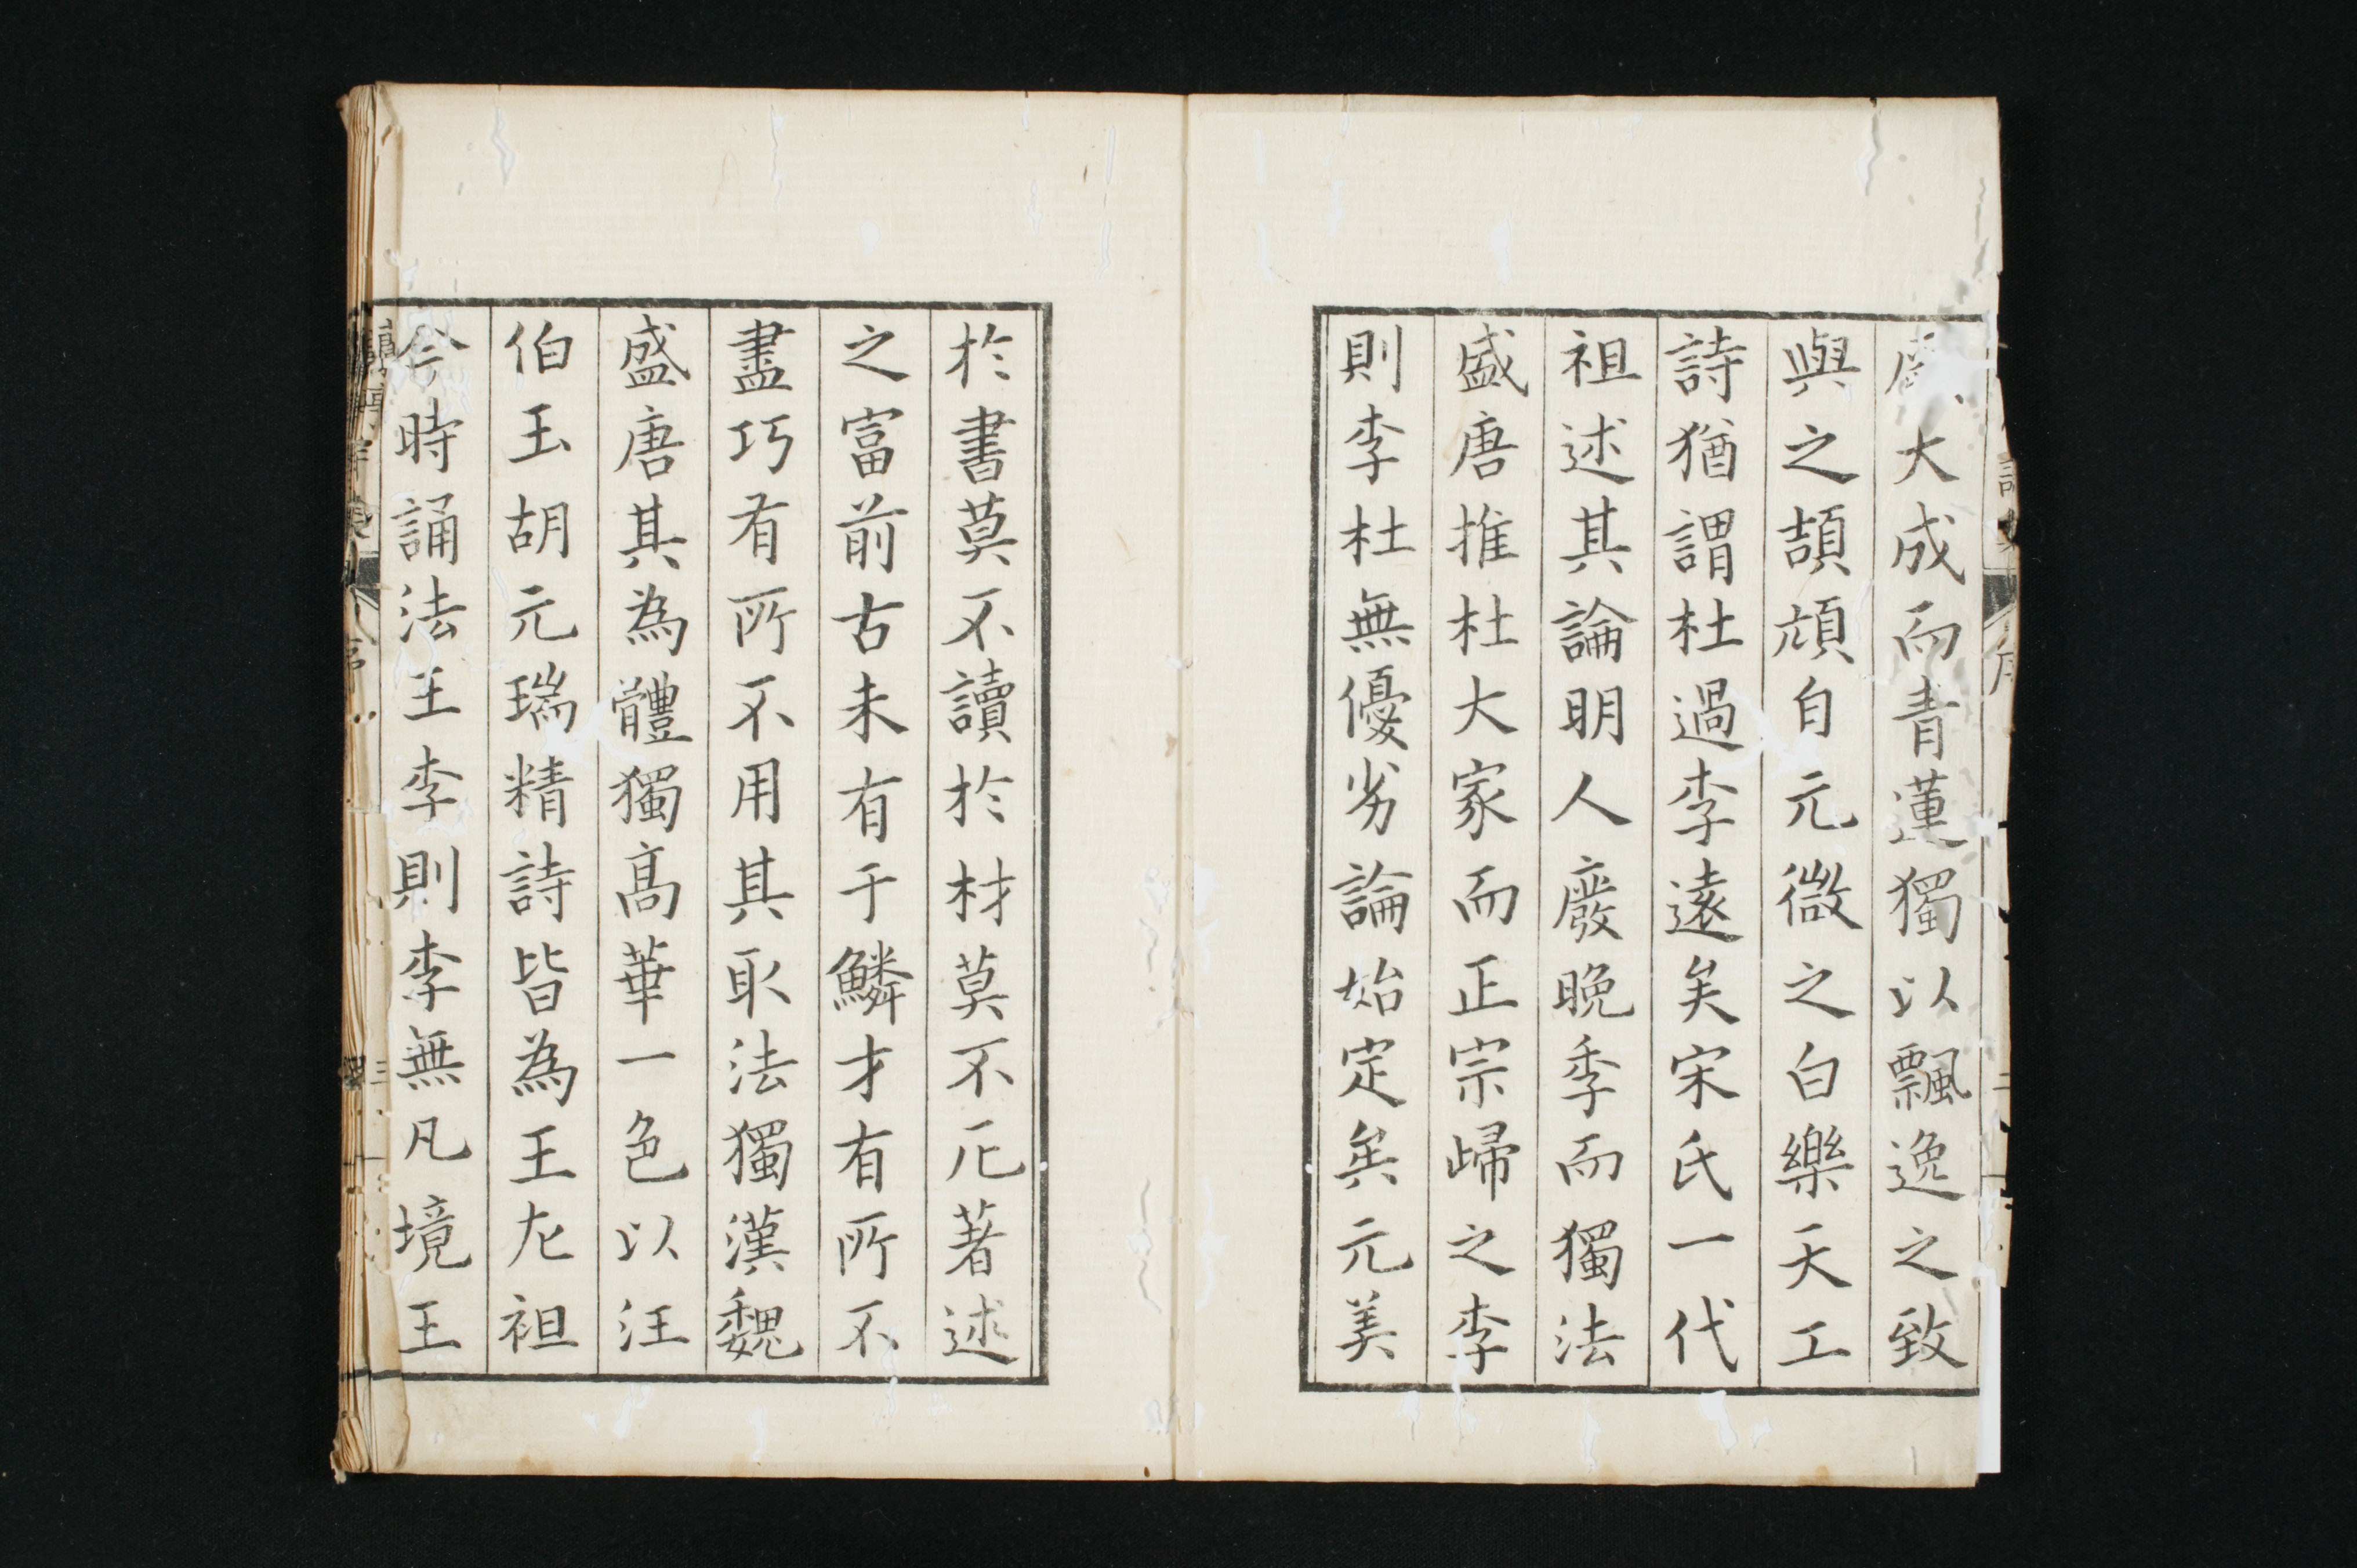 大成而青蓮獨以飄逸之致
與之頡頏自元微之白樂天工
詩猶謂杜過李遠矣宋氏一代
祖述其論明人廢晚季而獨法
盛唐推杜大家而正宗歸之李
則李杜無優劣論始定矣元美
於書莫不讀於材莫不厄著述
之富前古未有于鱗才有所不
盡巧有所不用其取法獨漢魏
盛唐其為體獨高華一色以汪
伯玉胡元瑞精詩皆為王左袒
今時誦法王李則李無凡境王